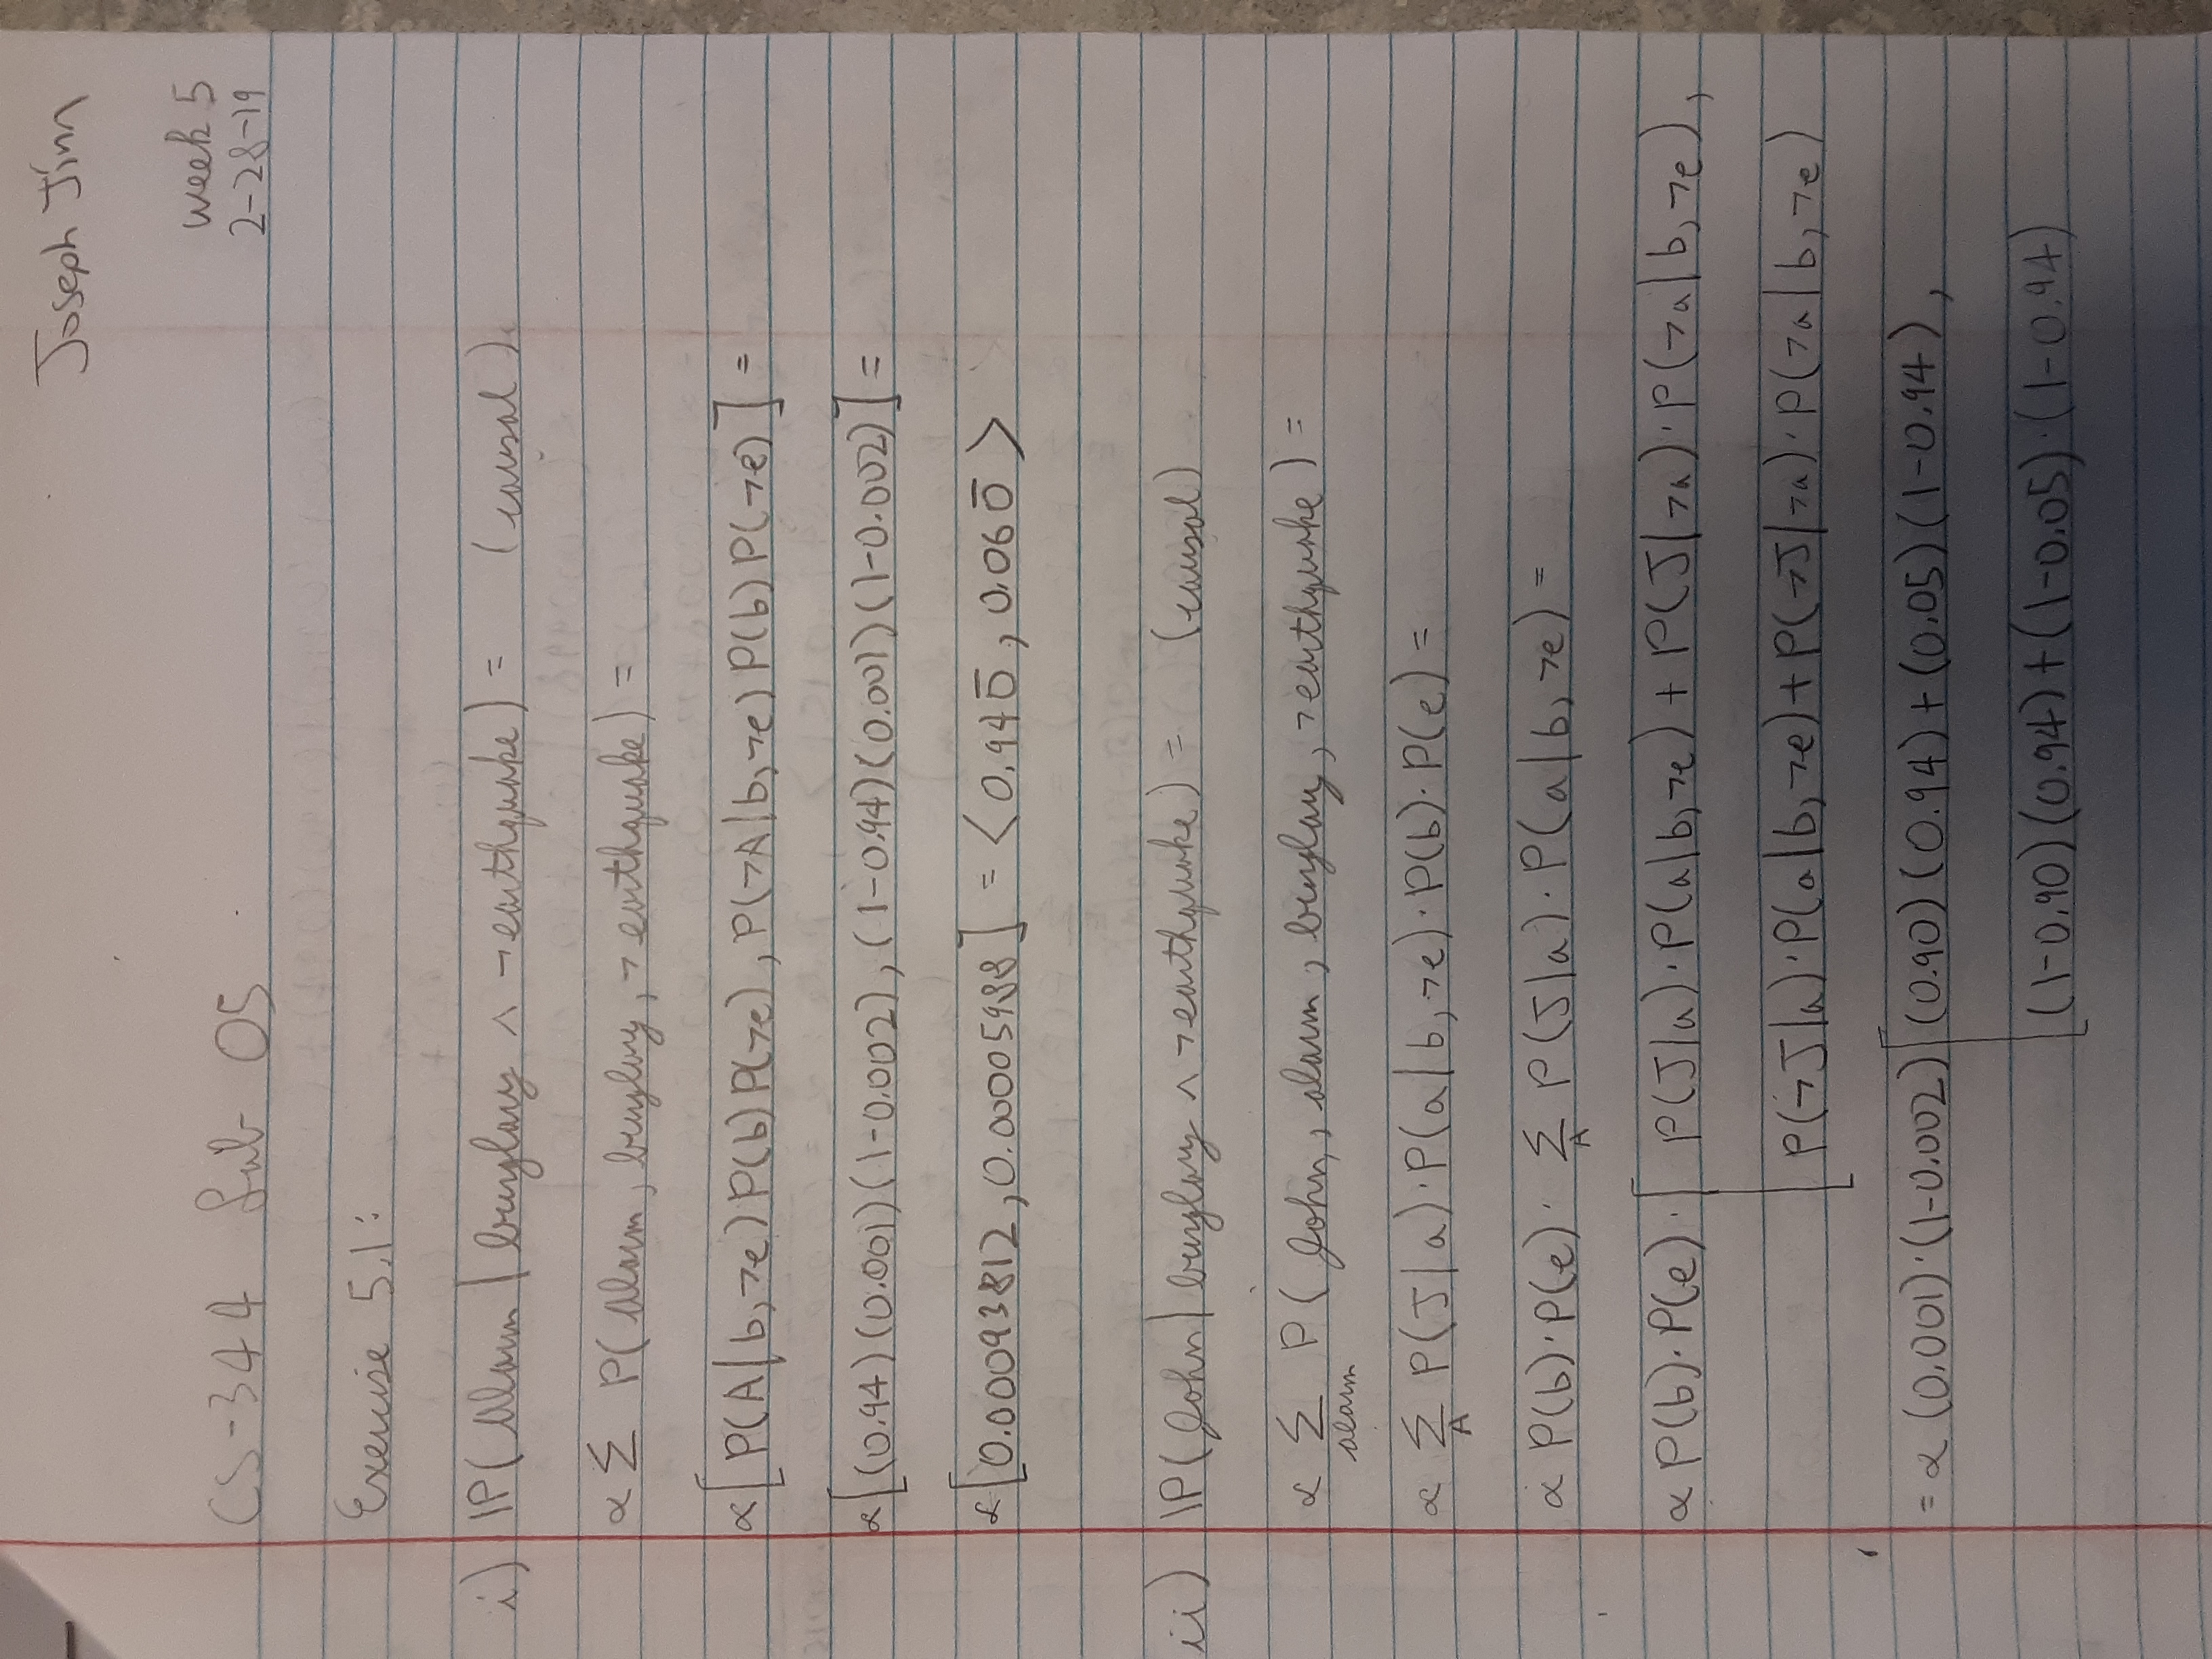 Joseph Jinn
week 5
2-28-19
CS-344 Lab 05
Exercise 5.1:
i) ℙ(Alarm | burglary ∧ ¬earthquake) = (causal)
∝ Σ P(Alarm, burglary, ¬earthquake) =
∝[P(A|b,¬e)P(b)P(¬e), P(¬A|b,¬e)P(b)P(¬e)] =
∝[(0.94)(0.001)(1-0.002), (1-0.94)(0.001)(1-0.002)] =
∝[0.00093812, 0.00005988] = <0.940̅, 0.060̅>
ii) ℙ(John | burglary ∧ ¬earthquake) = (causal)
∝ Σ P(John, alarm, burglary, ¬earthquake) =
alarm
∝ Σ P(J|a)·P(a|b,¬e)·P(b)·P(e) =
A
∝ P(b)·P(e)· Σ P(J|a)·P(a|b,¬e) =
A
∝ P(b)·P(e)·[ P(J|a)·P(a|b,¬e) + P(J|¬a)·P(¬a|b,¬e),
P(¬J|a)·P(a|b,¬e) + P(¬J|¬a)·P(¬a|b,¬e)
= ∝ (0.001)·(1-0.002)[(0.90)(0.94) + (0.05)(1-0.94),
(1-0.90)(0.94) + (1-0.05)·(1-0.94)